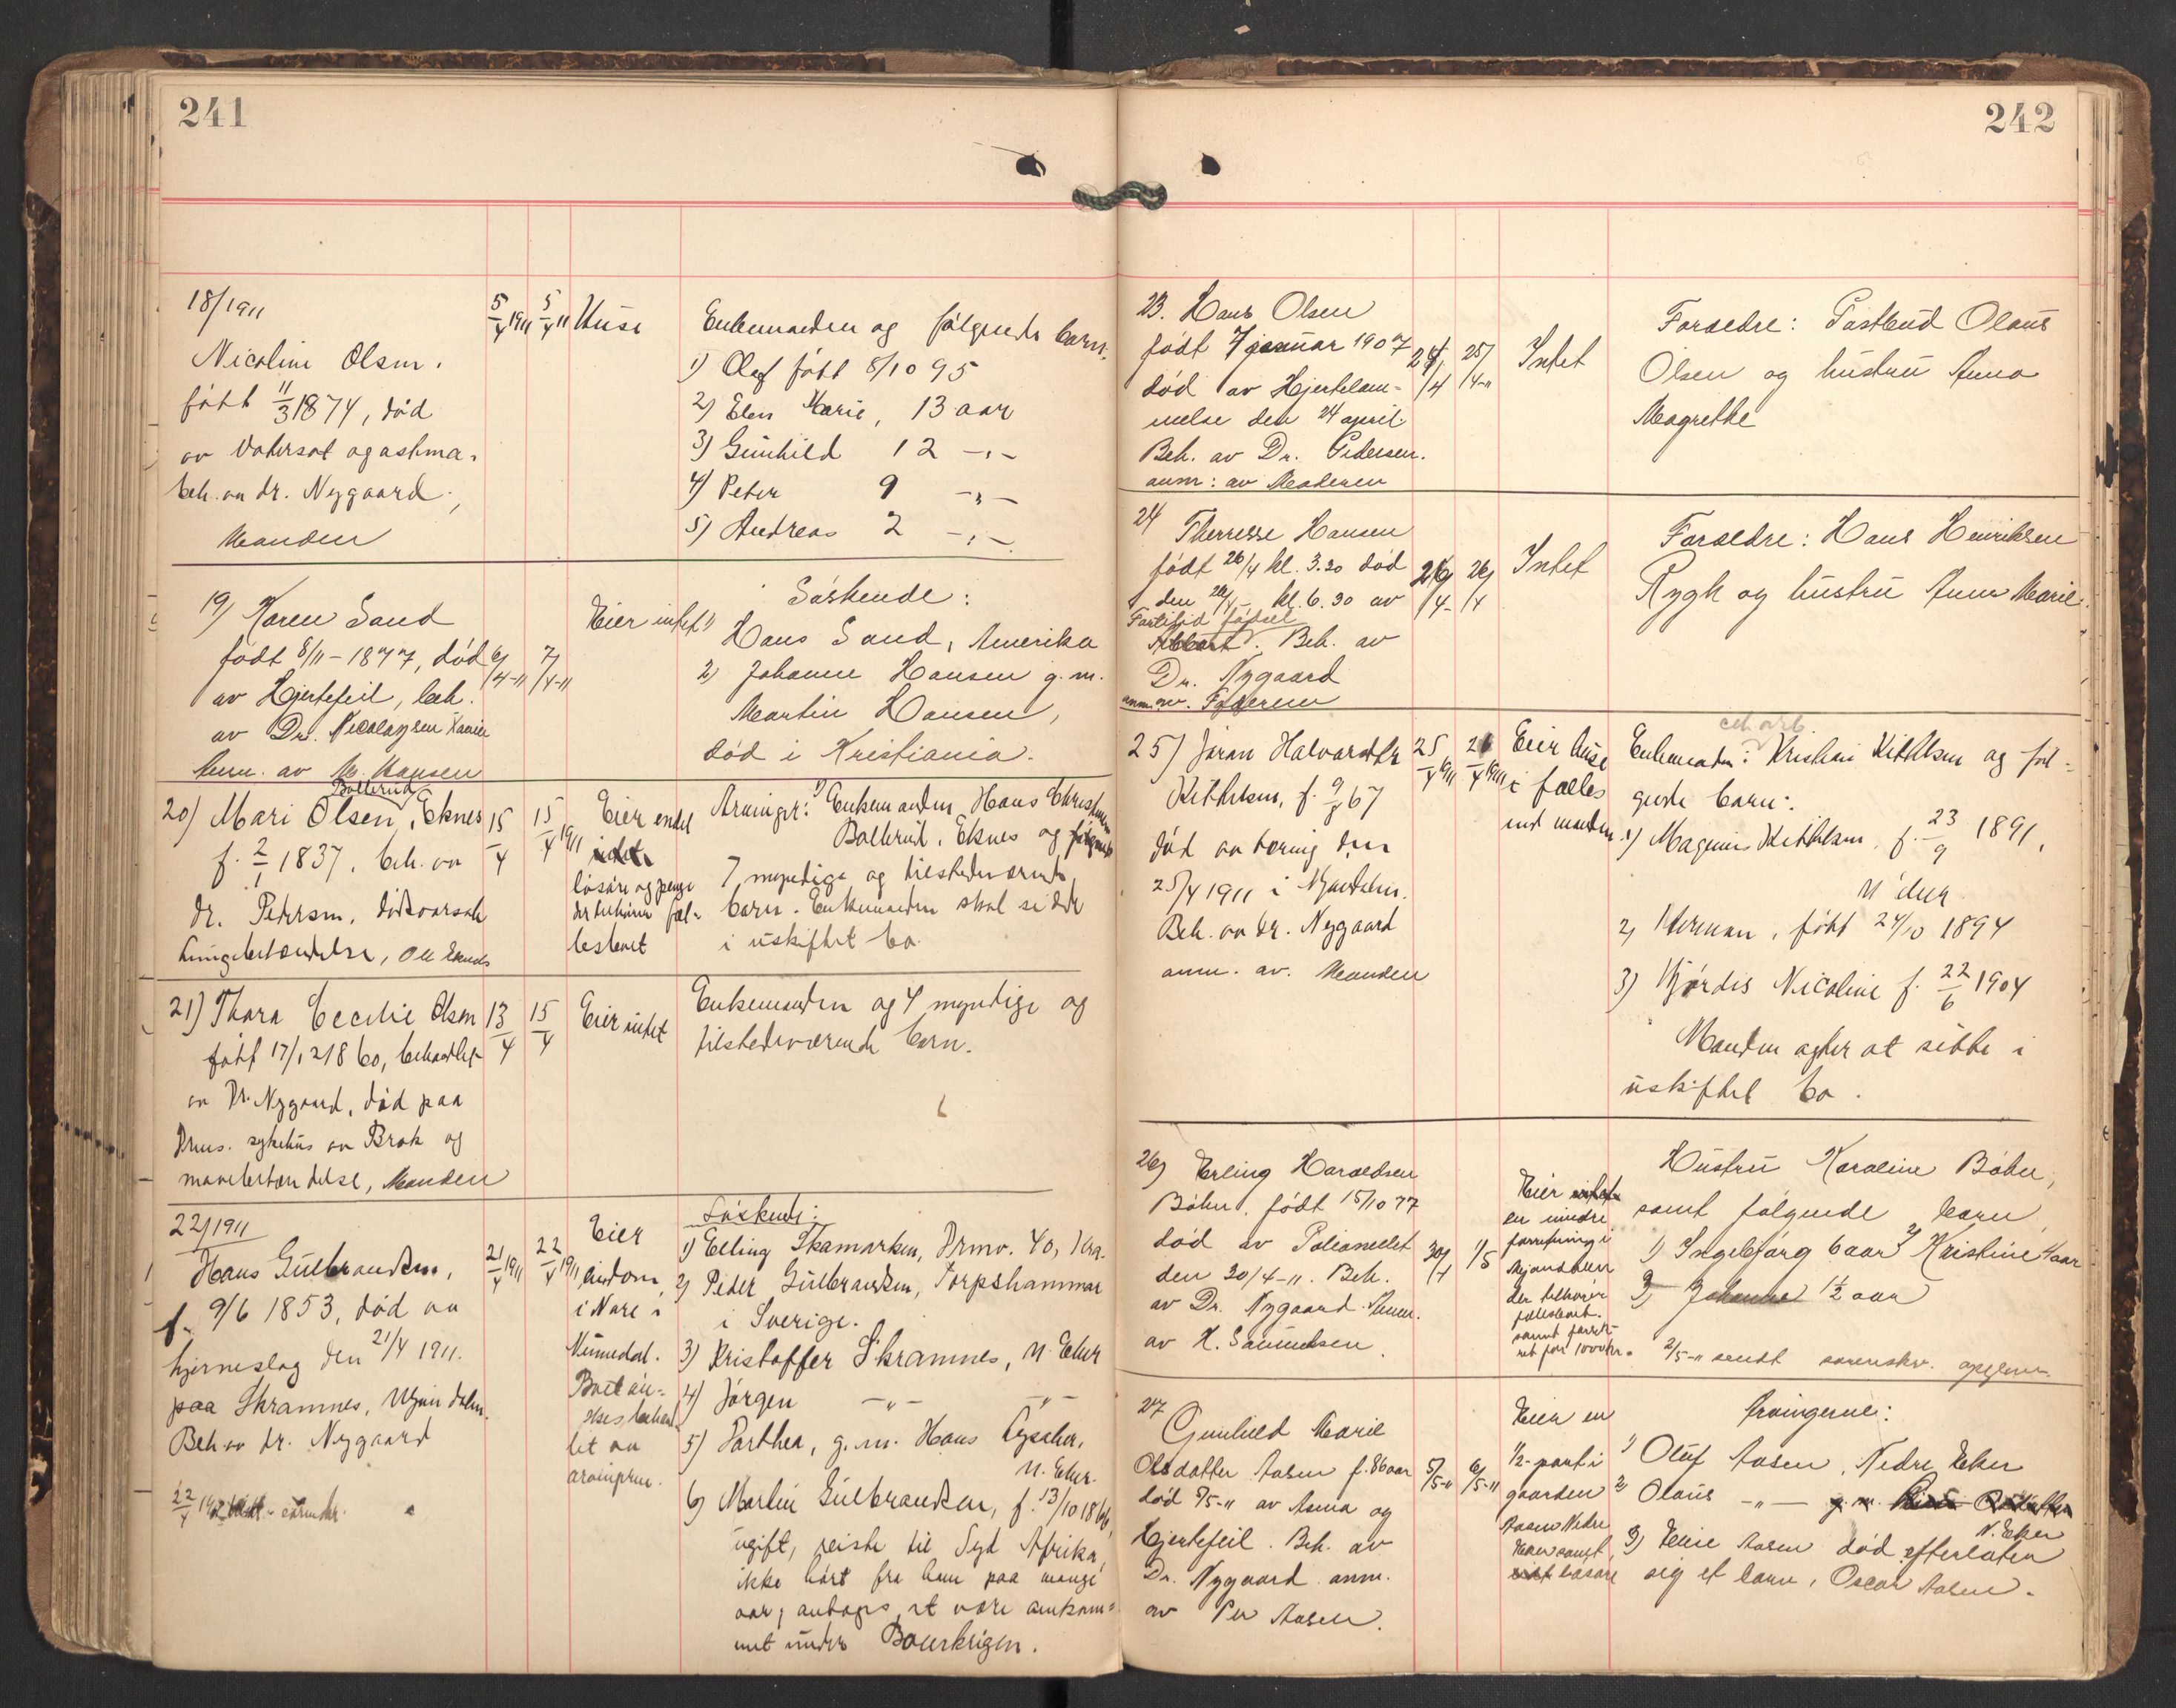 241
18/1911
Nicoline Olsen.
født 11/3 1874, død
av Vatersot og astma.
beh. av dr. Nygaard.,
Manden
5/4 1911
5/4 11
Huse
Enkemanden og følgende barn.
1) Olaf født 8/10 95
2) Elen Marie, 13 aar
3) Gunhild 12 -"-
4) Peter 9 -"-
5) Andreas 2 -"-
19) Karen Sand
født 8/11-1877, død
av Hjertefeil, beh.
av Dr. Nicolaysen
Anm. av M. Hansen
6/4-11
7/4-11
Eier intet
Søskende:
1) Hans Sand, Amerika
2) Johanne Hansen g.m.
Martin Hansen,
død i Kristiania.
Bollerud
20) Mari Olsen, Eknes
f. 2/1 1837. beh. av
dr. Pedersen. dødsaarsak
Lungebetændelse, Ole Eknes
15/4
15/4 1911
Eier endel
løsøre og penge
der tilhører fæl-
lesboet
Arvinger: 1) Enkemanden Hans Christensen
Bollerud, Eknes og følgende
7 myndige og tilstedeværende
barn. Enkemanden skal sidde
i uskiftet bo.
21) Thora Cecilie Olsen
født 17/12 1860, behandlet
av Dr. Nygaard, død paa
Drms. sykehus av Brok og
mavebetændelse, Manden
13/4
15/4
Eier intet
Enkemanden og 4 myndige og
tilstedeværende barn.
22/1911
Hans Gulbrandsen,
f. 9/6 1853, død av
hjerneslag den 21/4 1911.
paa Skramnes, Mjøndalen.
Beh av dr. Nygaard
22/4
21/4 1911
22/4 1911
Eier
eiendom,
i Nore i
Numedal.
Boet øn-
skes behand-
let av
arvingerne.
Søskende:
1) Elling Skamarken, Drmv. 40, Kra.
2) Peder Gulbrandsen, Torpshammar
i Sverige.
3) Kristoffer Skramnes, N. Eker
4) Jørgen -"- -"-
5) Dorthea, g.m. Hans
N. Eker.
6) Martin Gulbrandsen, f. 13/10 1866,
ugift, reiste til Syd Afrika,
ikke hørt fra ham paa mange
aar, antages, at være omkom-
met under Boerkrigen.
242
23. Hans Olsen
født 7 januar 1907
død av Hjertelam-
melse den 24 april
Beh. av Dr. Pedersen.
anm: av Moderen
24/4
25/4-11
Intet
Foræedre: Postbud Olaus
Olsen og hustru Anna
Magrethe
24
Therresse Hansen
født 26/4 kl. 3.20 død
den 26/4- kl. 6.30 av
Fortitid fødsel
Abbort. Beh. av
Dr. Nygaard
anm. av. Faderen
26/4-
26/4
Intet
Foræedre: Hans Henriksen
Rygh og hustru Anna Marie.
25) Jøran Halvorsdtr
Kittilsen, f. 67
død av tæring den
25/4 1911 i Mjøndalen.
Beh. av Dr. Nygaard
anm. av. Manden
25/4 1911
26/4 1911
Eier huse
i fælles
med manden
Enkemanden: Kristian Kittilsen og føl-
gende barn:
1) Magnus Kittilsen, f. 23/9 1891,
N Eker
2) Herman, født 24/10 1894
3) Hjørdis Nicoline f. 22/6 1904
Manden agter at sitte i
uskiftet bo.
26) Erling Haraldsen
Bøhn. født 15/10 77
død av Polionellet
den 30/4-11. Beh.
av Dr. Nygaard. Anm.
av H. Samuelsen
30/4
1/5
Eier intet
en mindre
forretning i
Mjøndalen
der tilhører
fællesboet.
samt forsik-
ret for 1000 kr.
Hustru Karoline Bøhn,
samt følgende barn
1) Ingebjørg 6 aar 2) Kristine 4 aar
3) Johanne 1½ aar
2/5-11 sendt sorenskr.
27
Gunhild Marie
Olsdatter Aasen f. 86 aar
død 5/5-11 av Asma og
Hjertefeil. Beh. av
Dr. Nygaard anm.
av Per Aasen.
5/5-11
6/5-11
Eier en
1/2-part i
gaarden
Aasen Nedre
Eker samt
løsøre
Arvingerne:
1) Oluf Aasen, Nedre Eker
2) Olaus -"- g.m.
N. Eker
3) Elise Aasen død efterlater
sig et barn, Oscar Aasen.